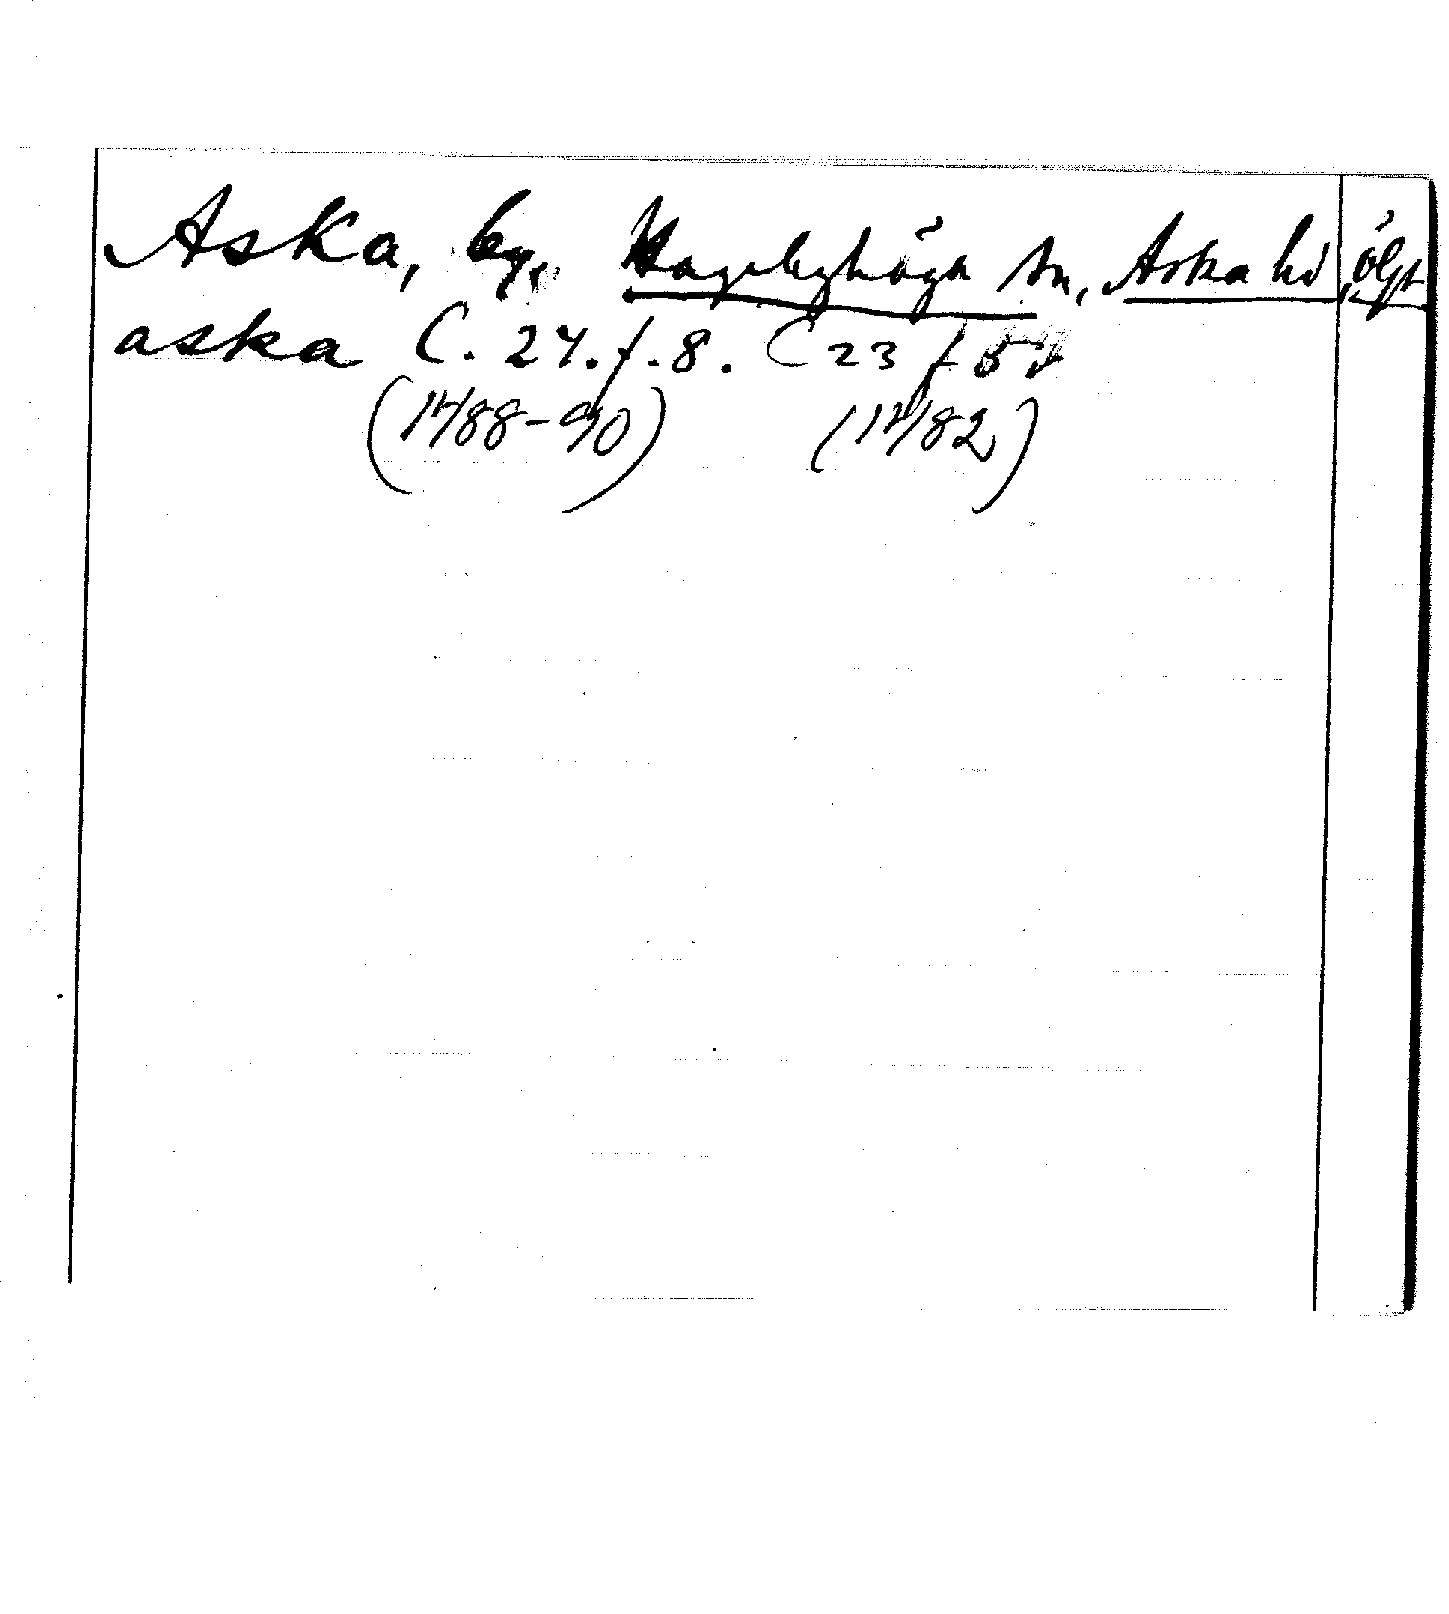 Aska, by, Hagebyhöga sn, Aska hd, ölgt
aska C. 24. f. 8. C 23 f 5
(1488-90) (1482)